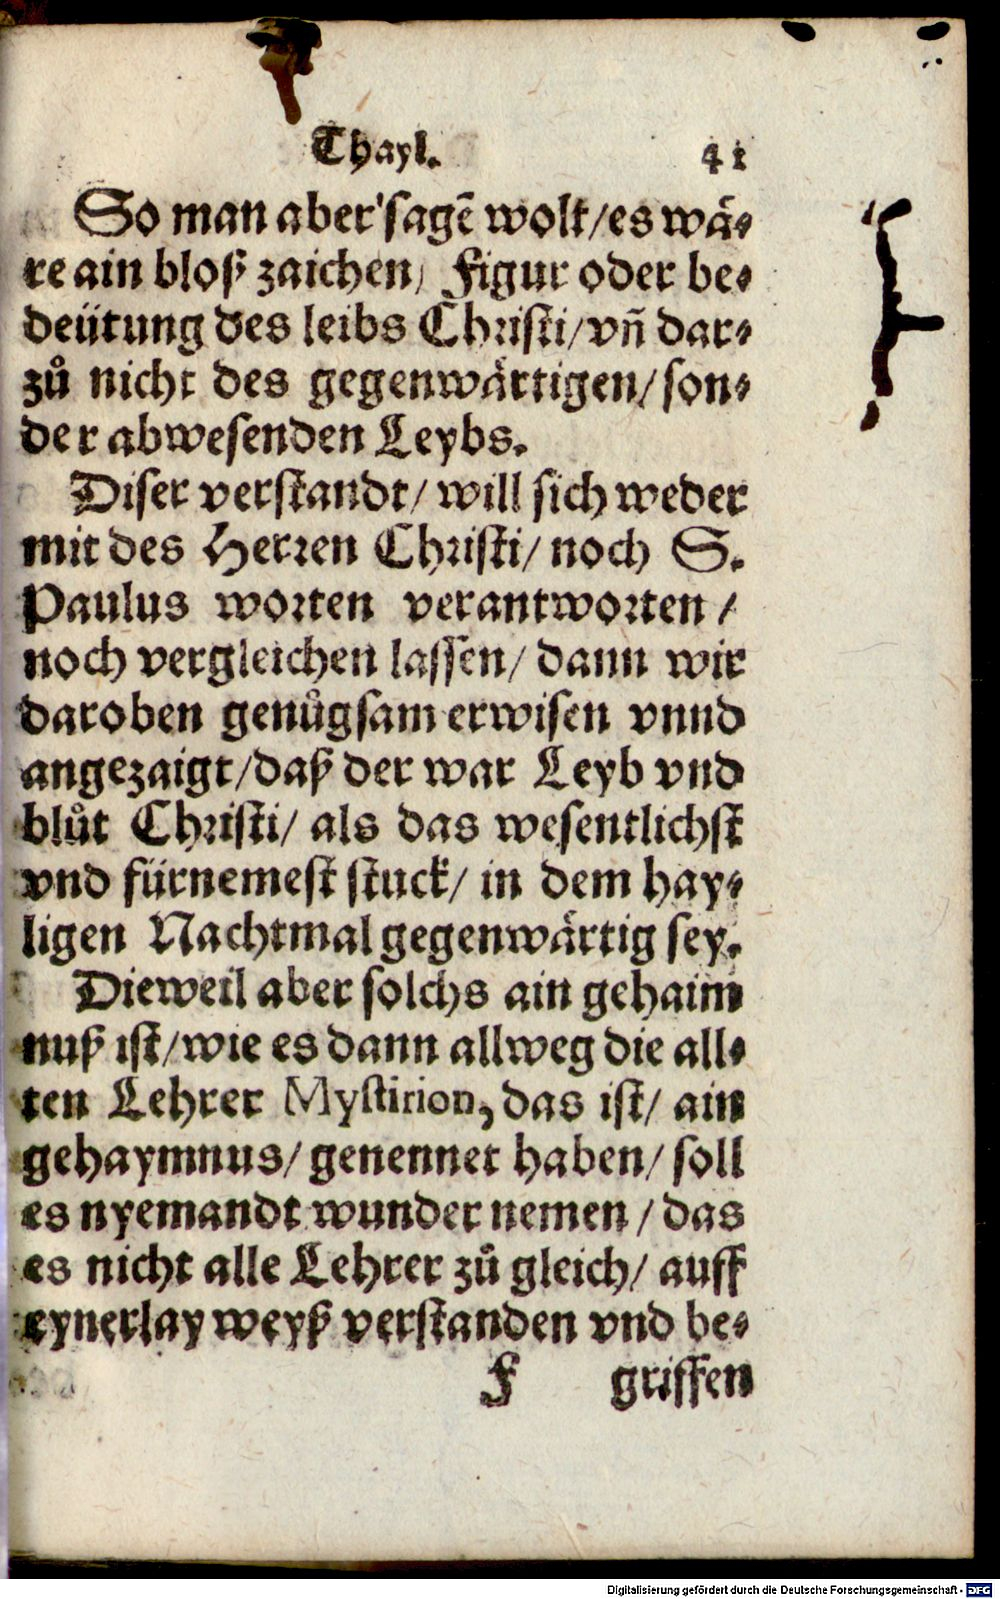 Thayl. 41
So man aber sagē wolt/es wä⸗
re ain bloß zaichen/ Figur oder be⸗
deütung des leibs Christi/vñ dar⸗
zů nicht des gegenwärtigen/son⸗
der abwesenden Leybs.
Diser verstandt/ will sich weder
mit des Herren Christi/ noch S.
Paulus worten verantworten/
noch vergleichen lassen/ dann wir
daroben genůgsam erwisen vnnd
angezaigt/daß der war Leyb vnd
blůt Christi/ als das wesentlichst
vnd fürnemest stuck/ in dem hay⸗
ligen Nachtmal gegenwärtig sey.
Dieweil aber solchs ain gehaim
nuß ist/wie es dann allweg die all⸗
ten Lehrer Mystirion, das ist/ ain
gehaymnus/ genennet haben/ soll
es nyemandt wunder nemen/ das
es nicht alle Lehrer zů gleich/ auff
eynerlay weyß verstanden vnd be⸗
F griffen
Digitalisierung gefördert durch die Deutsche Forschungsgemeinschaft - DFG